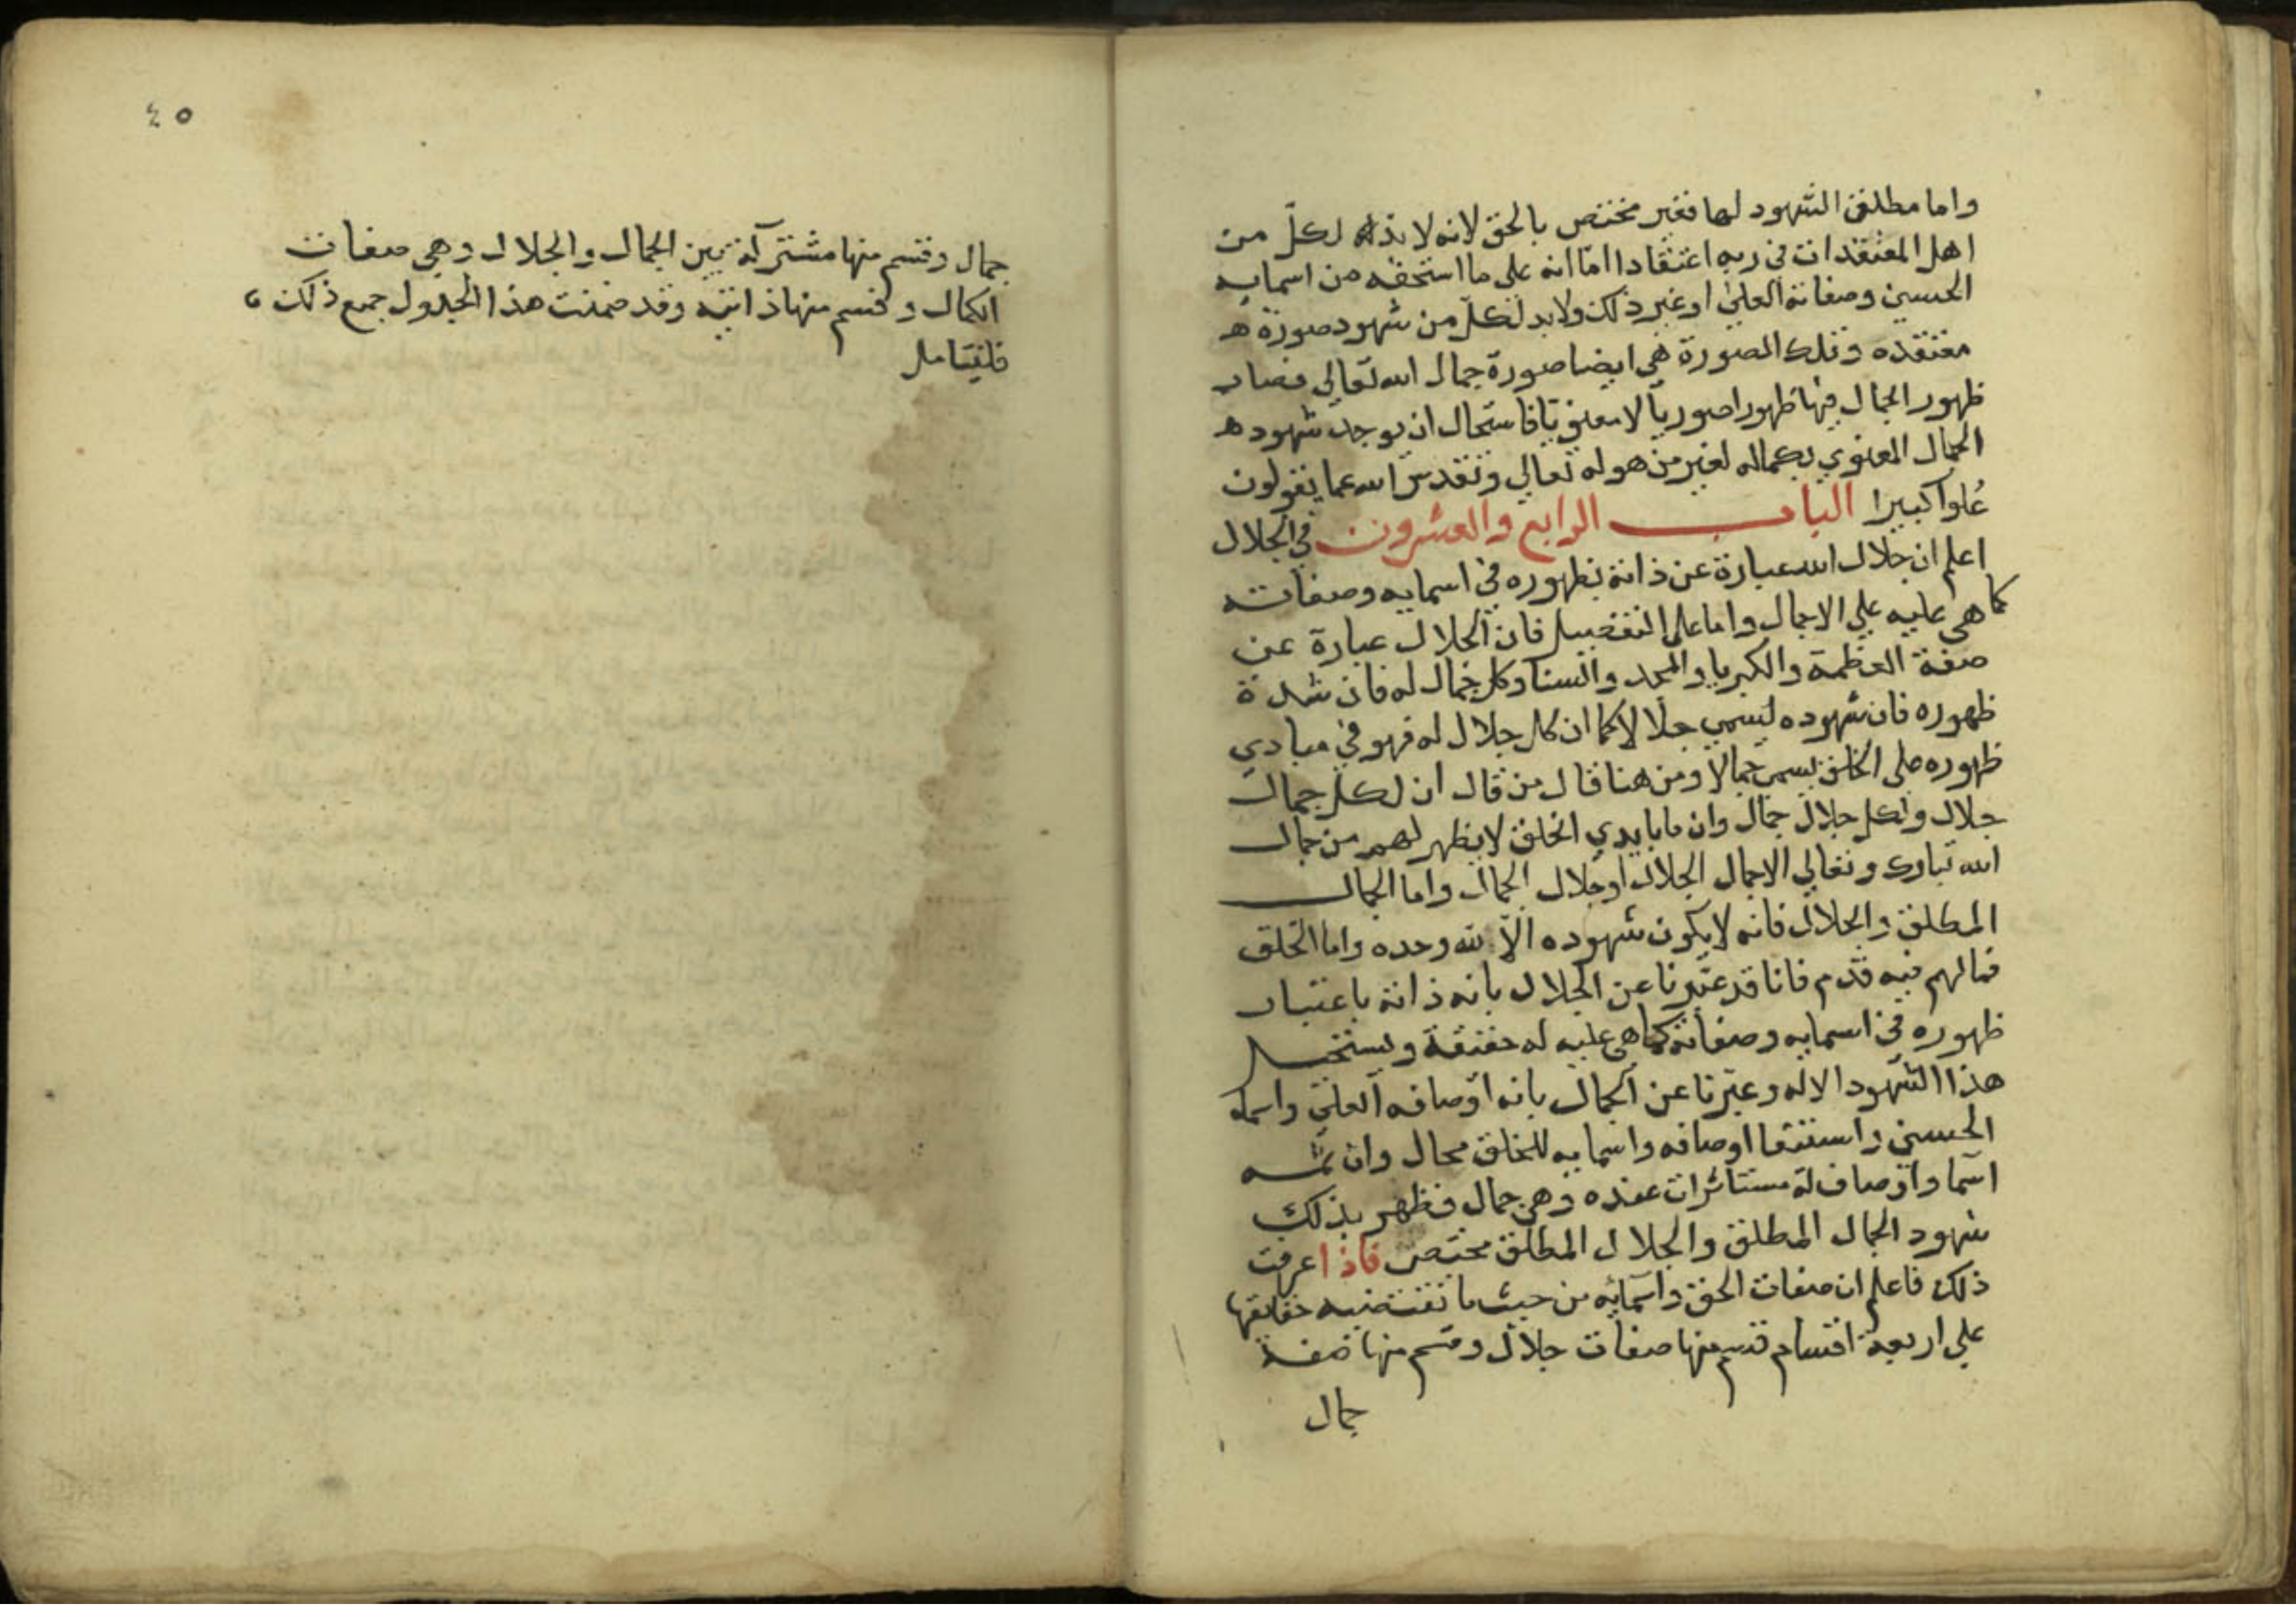 واما مطلق الشهود لها فغير مختص بالحق لانه لا بد لكلّ من
اهل المعتقدات في ربه اعتقادا اما انه على ما استحقه من اسمايه
الحسني وصفاته العلي او غير ذلك ولا بد لكلّ من شهود صورة ه
معتقده وتلك الصورة هي ايضا صورة جمال الله تعالي فصار
ظهور الجمال فيها ظهورا صوريا لا معنويا فاستحال ان يوجد شهود ه
الجمال المعنوي بكماله لغير من هو له تعالي وتقدس الله عما يقولون
عُلوا كبيرا الباب الرابع والعشرون في الجلال
اعلم ان جلال الله عبارة عن ذاته بظهوره في اسمايه وصفاته
كما هي عليه علي الاجمال واما على التفصيل فان الجلال عبارة عن
صفة العظمة والكبريا والمجد والسنا وكل جمال له فان شدة
ظهوره فان شهوده ليسمي جلالا كما ان كل جلال له فهو في مبادي
ظهوره على الخلق يسمي جمالا ومن هنا قال من قال ان لكل جمال
جلال ولكل جلال جمال وان ما بايدي الخلق لا يظهر لهم من جمال
الله تبارك وتعالي الا جمال الجلال او جلال الجمال واما الجمال
المطلق والجلال فانه لا يكون شهوده الاّ لله وحده واما الخلق
فما لهم فيه قدم فانا قد عبّرنا عن الجلال بانه ذاته باعتبار
ظهوره في اسمايه وصفاته كما هي عليه له حقيقة ويستحيل
هذا الشهود الا له وعبّرنا عن الجمال بانه اوصافه العلي واسماه
الحسني واستيفا اوصافه واسمايه للخلق محال وان ثمه
اسما واوصاف له مستاثرات عنده وهي جمال فظهر بذلك
شهود الجمال المطلق والجلال المطلق مختص فاذا عرفت
ذلك فاعلم ان صفات الحق واسمائه من حيث ما تقتضيه حقايقها
علي اربعة اقسام قسم منها صفات جلال وقسم منها صفة
جمال
٤٥
جمال وقسم منها مشتركة بين الجمال والجلال وهي صفات
الكمال وقسم منها ذاتيه وقد ضمنت هذا الجدول جمع ذلك
فليتامل